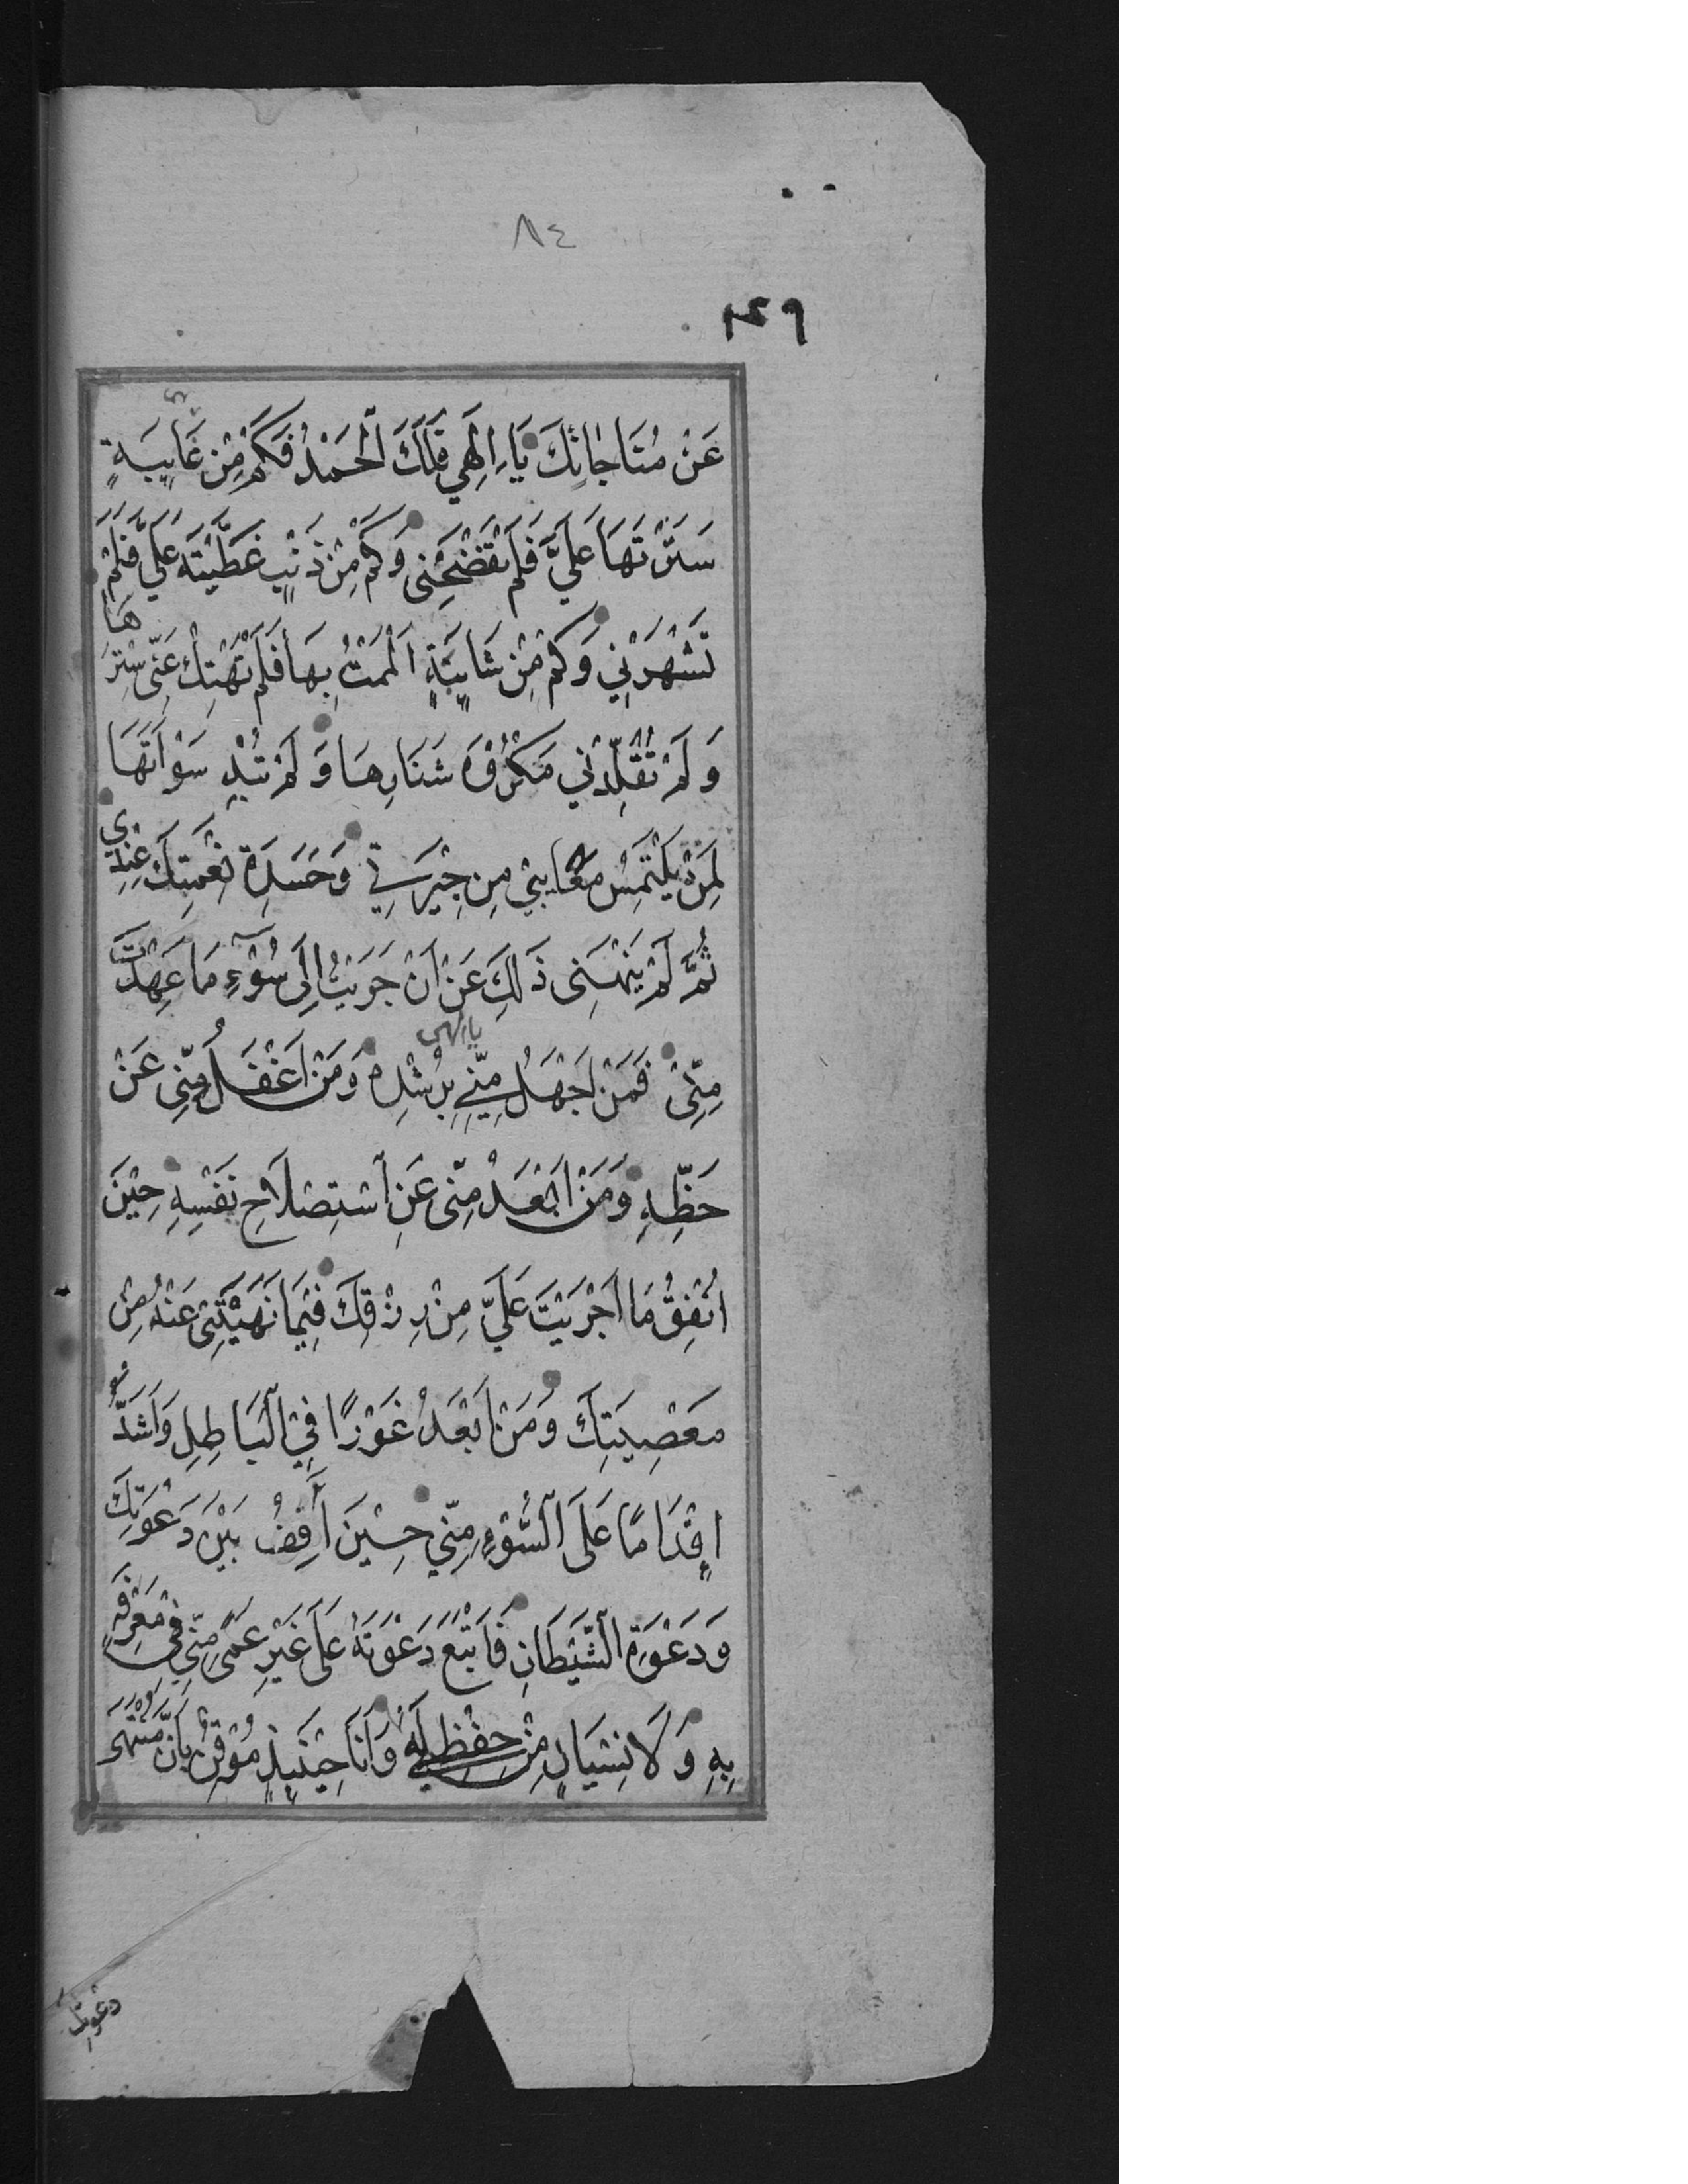 ٨٤
١٤٩
عَنْ مُنَاجَاتِكَ يَا اِلٰهِي فَلَكَ الْحَمْدُ فَكَمْ مِنْ عَايِبَةٍ
سَتَرْتَهَا عَلَيَّ فَلَمْ تَفْضَحْنِى وَكَمْ مِنْ ذَنْبٍ غَطَّيْتَهُ عَلَيَّ فَلَمْ
تَشْهَرْنِي وَكَمْ مِنْ شَايِبَةٍ اَلْمَمْتُ بِهَا فَلَمْ تَهْتِكْ عَنّى سِتْرَهَا
وَلَمْ تُقَلِّدْنِي مَكْرُوْهَ شَنَارِهَا وَلَمْ تُبْدِ سَوْاَتَهَا
لِمَنْ يَلْتَمِسُ مَعَايِبِيْ مِنْ جِيْرَتِي وَحَسَدَةِ نِعْمَتِكَ عِنْدِي
ثُمَّ لَمْ يَنْهَنِى ذَلِكَ عَنْ اَنْ جَرَيْتُ اِلَى سُوْءِ مَا عَهِدْتَ
مِنِّىْ فَمَنْ اَجْهَلُ مِنّي يا الهى بِرُشْدِهِ وَمَنْ اَغْفَلُ مِنِّى عَنْ
حَظِّهِ وَمَنْ اَبْعَدُ مِنّى عَنِ اسْتِصْلَاحِ نَفْسِهِ حِيْنَ
اُنْفِقُ مَا اَجْرَيْتَ عَلَيَّ مِنْ رِزْقِكَ فِيْمَا نَهَيْتَنِى عَنْهُ مِنْ
مَعْصِيَتِكَ وَمَنْ اَبْعَدُ غَوْرًا فِي الْبَاطِلِ وَاَشَدُّ
اِقْدَامًا عَلَى السُّوْءِ مِنّي حِيْنَ اَقِفُ بَيْنَ دَعْوَتِكَ
وَدَعْوَةِ الشَّيْطَانِ فَاَتَّبِعُ دَعْوَتَهُ عَلَى غَيْرِ عَمًى مِنّي فِي مَعْرِفَةٍ
بِهِ وَلَا نِسْيَانٍ مِنْ حِفْظِي لَهُ وَاَنَا حِيْنَئِذٍ مُوْقِنٌ بِاَنَّ مُنْتَهَى
دعوتك